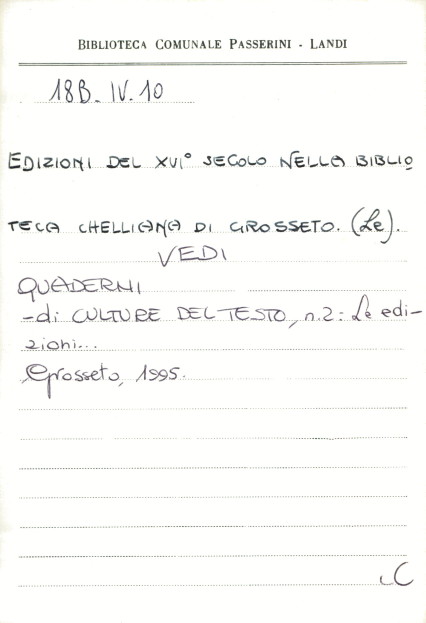 BIBLIOTECA COMUNALE PASSERINI - LANDI
18B. IV. 10
EDIZIONI DEL XVI° SECOLO NELLA BIBLIO
TECA CHELLIANA DI GROSSETO. (Le).
VEDI
QUADERNI
-di CULTURE DEL TESTO, n.2: Le edi-
zioni...
Grosseto, 1995.